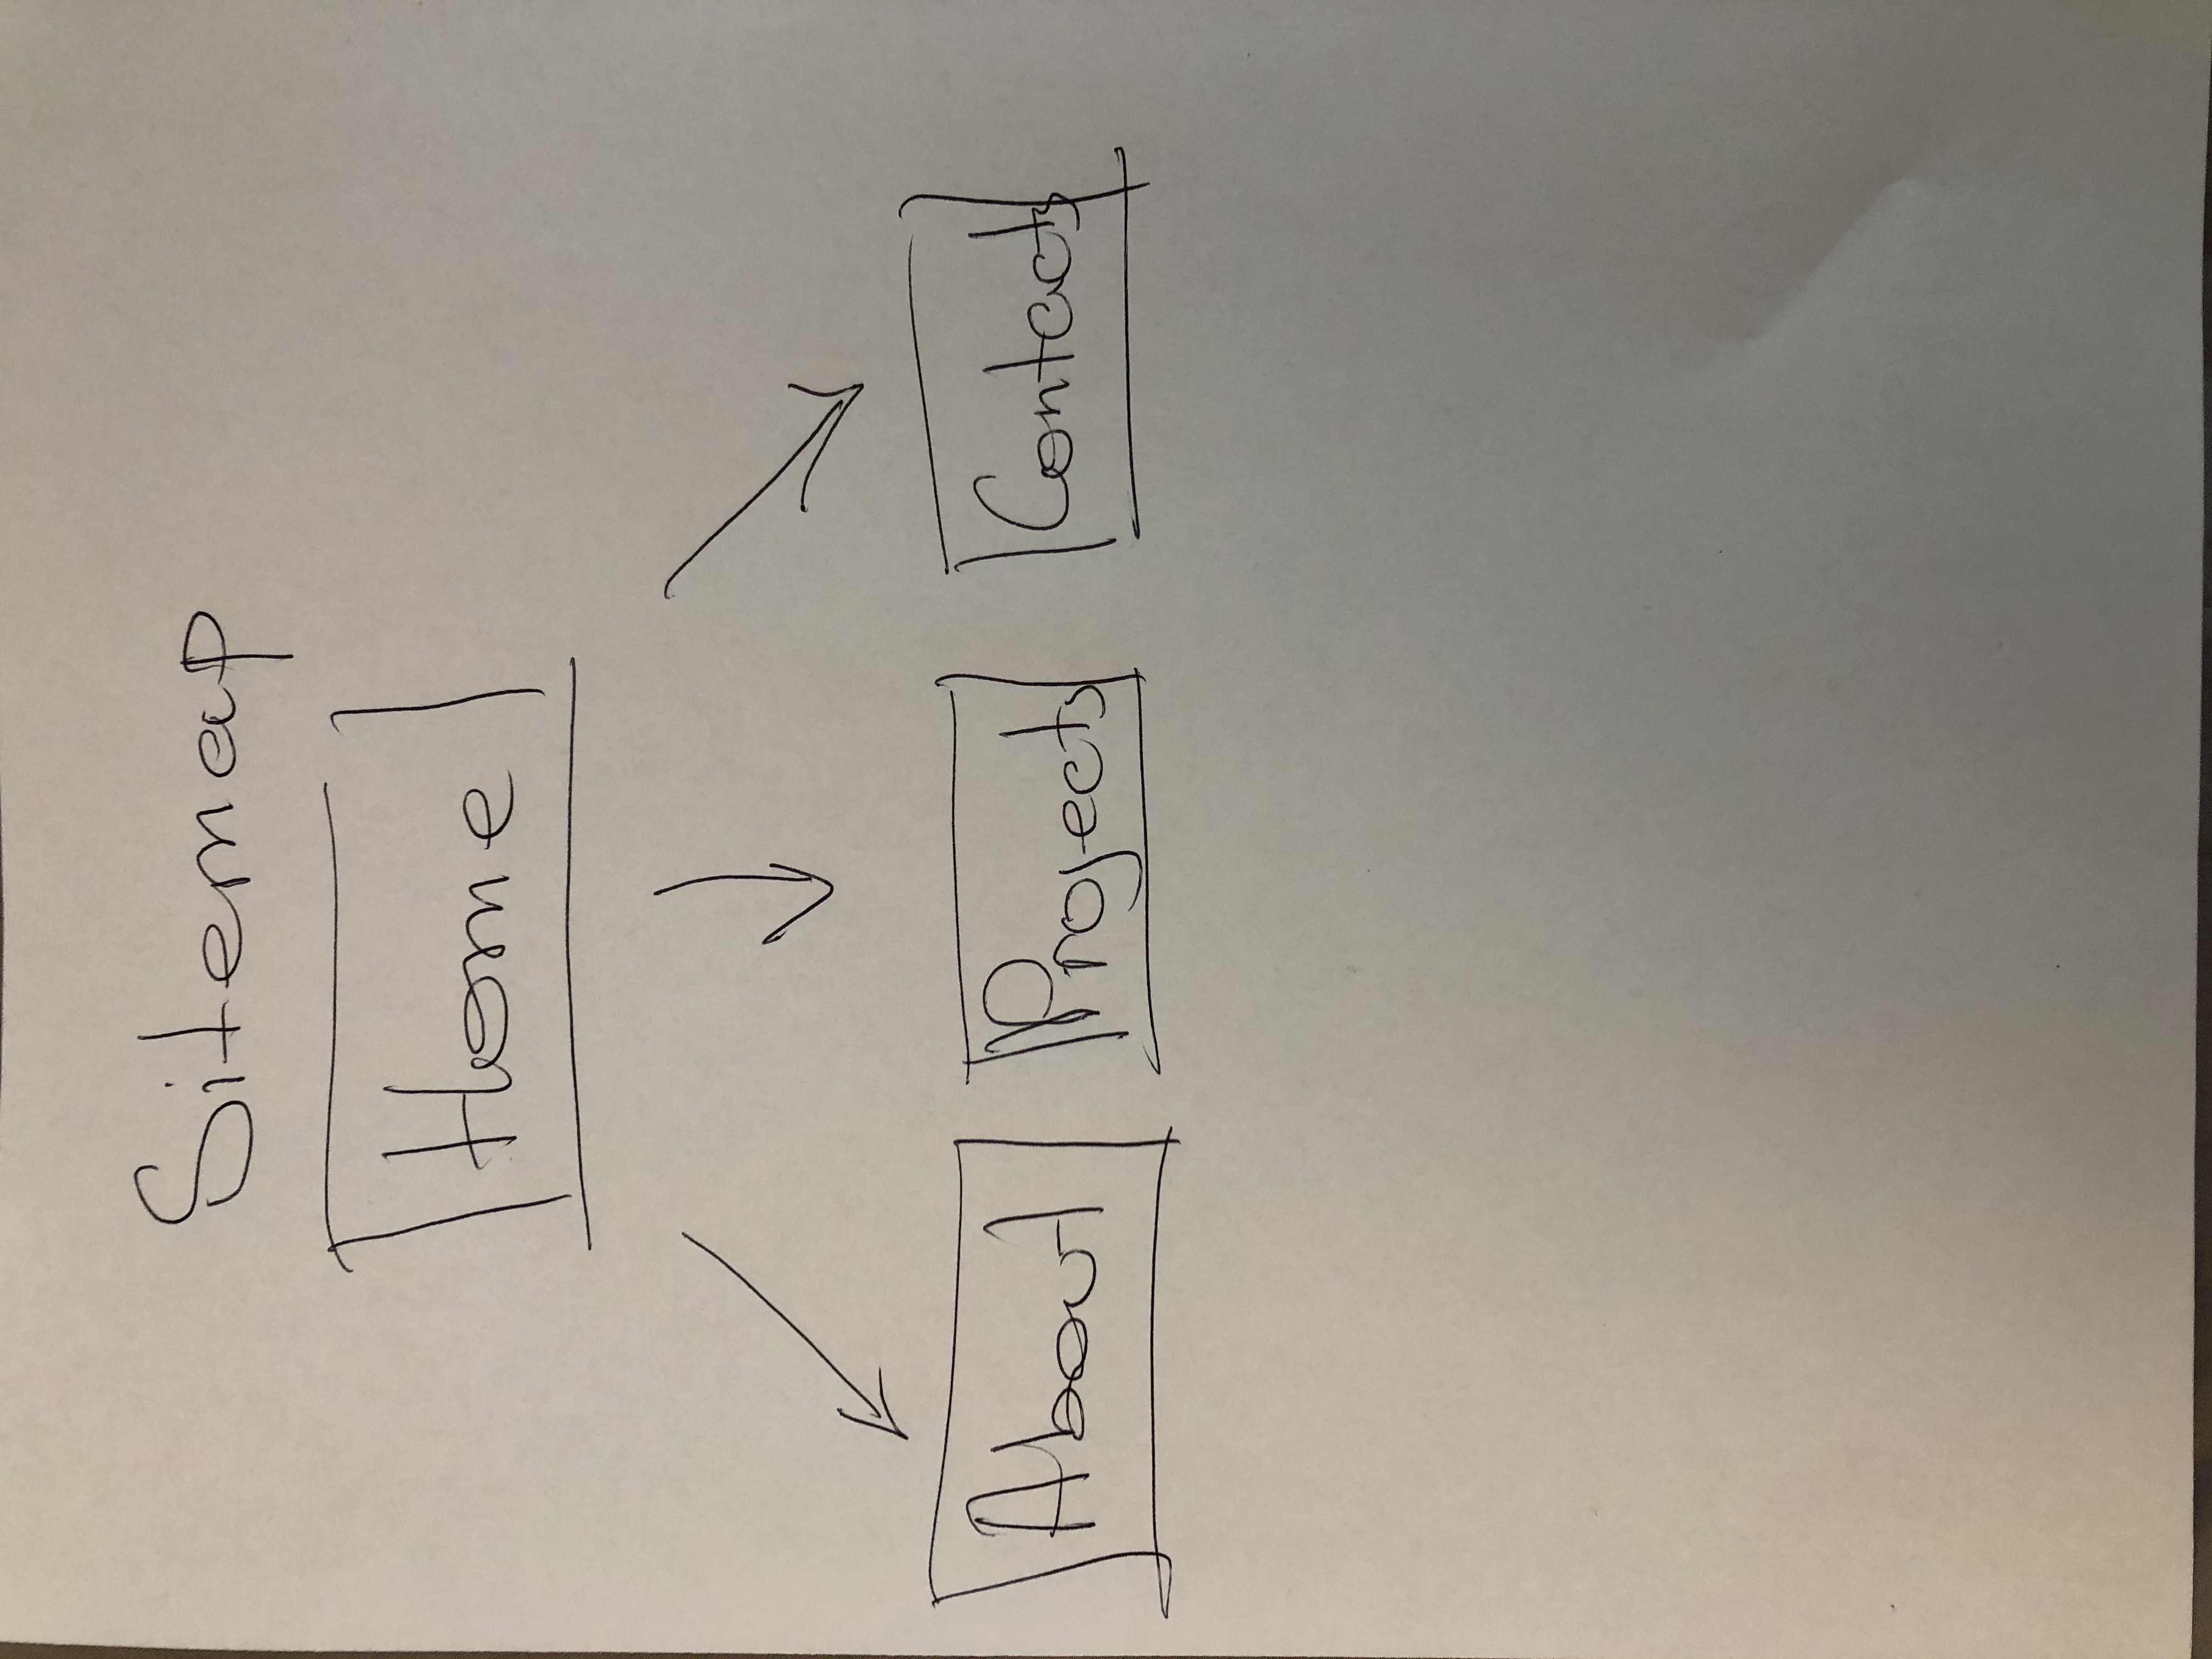 Sitemap
Home
About Projects Contacts